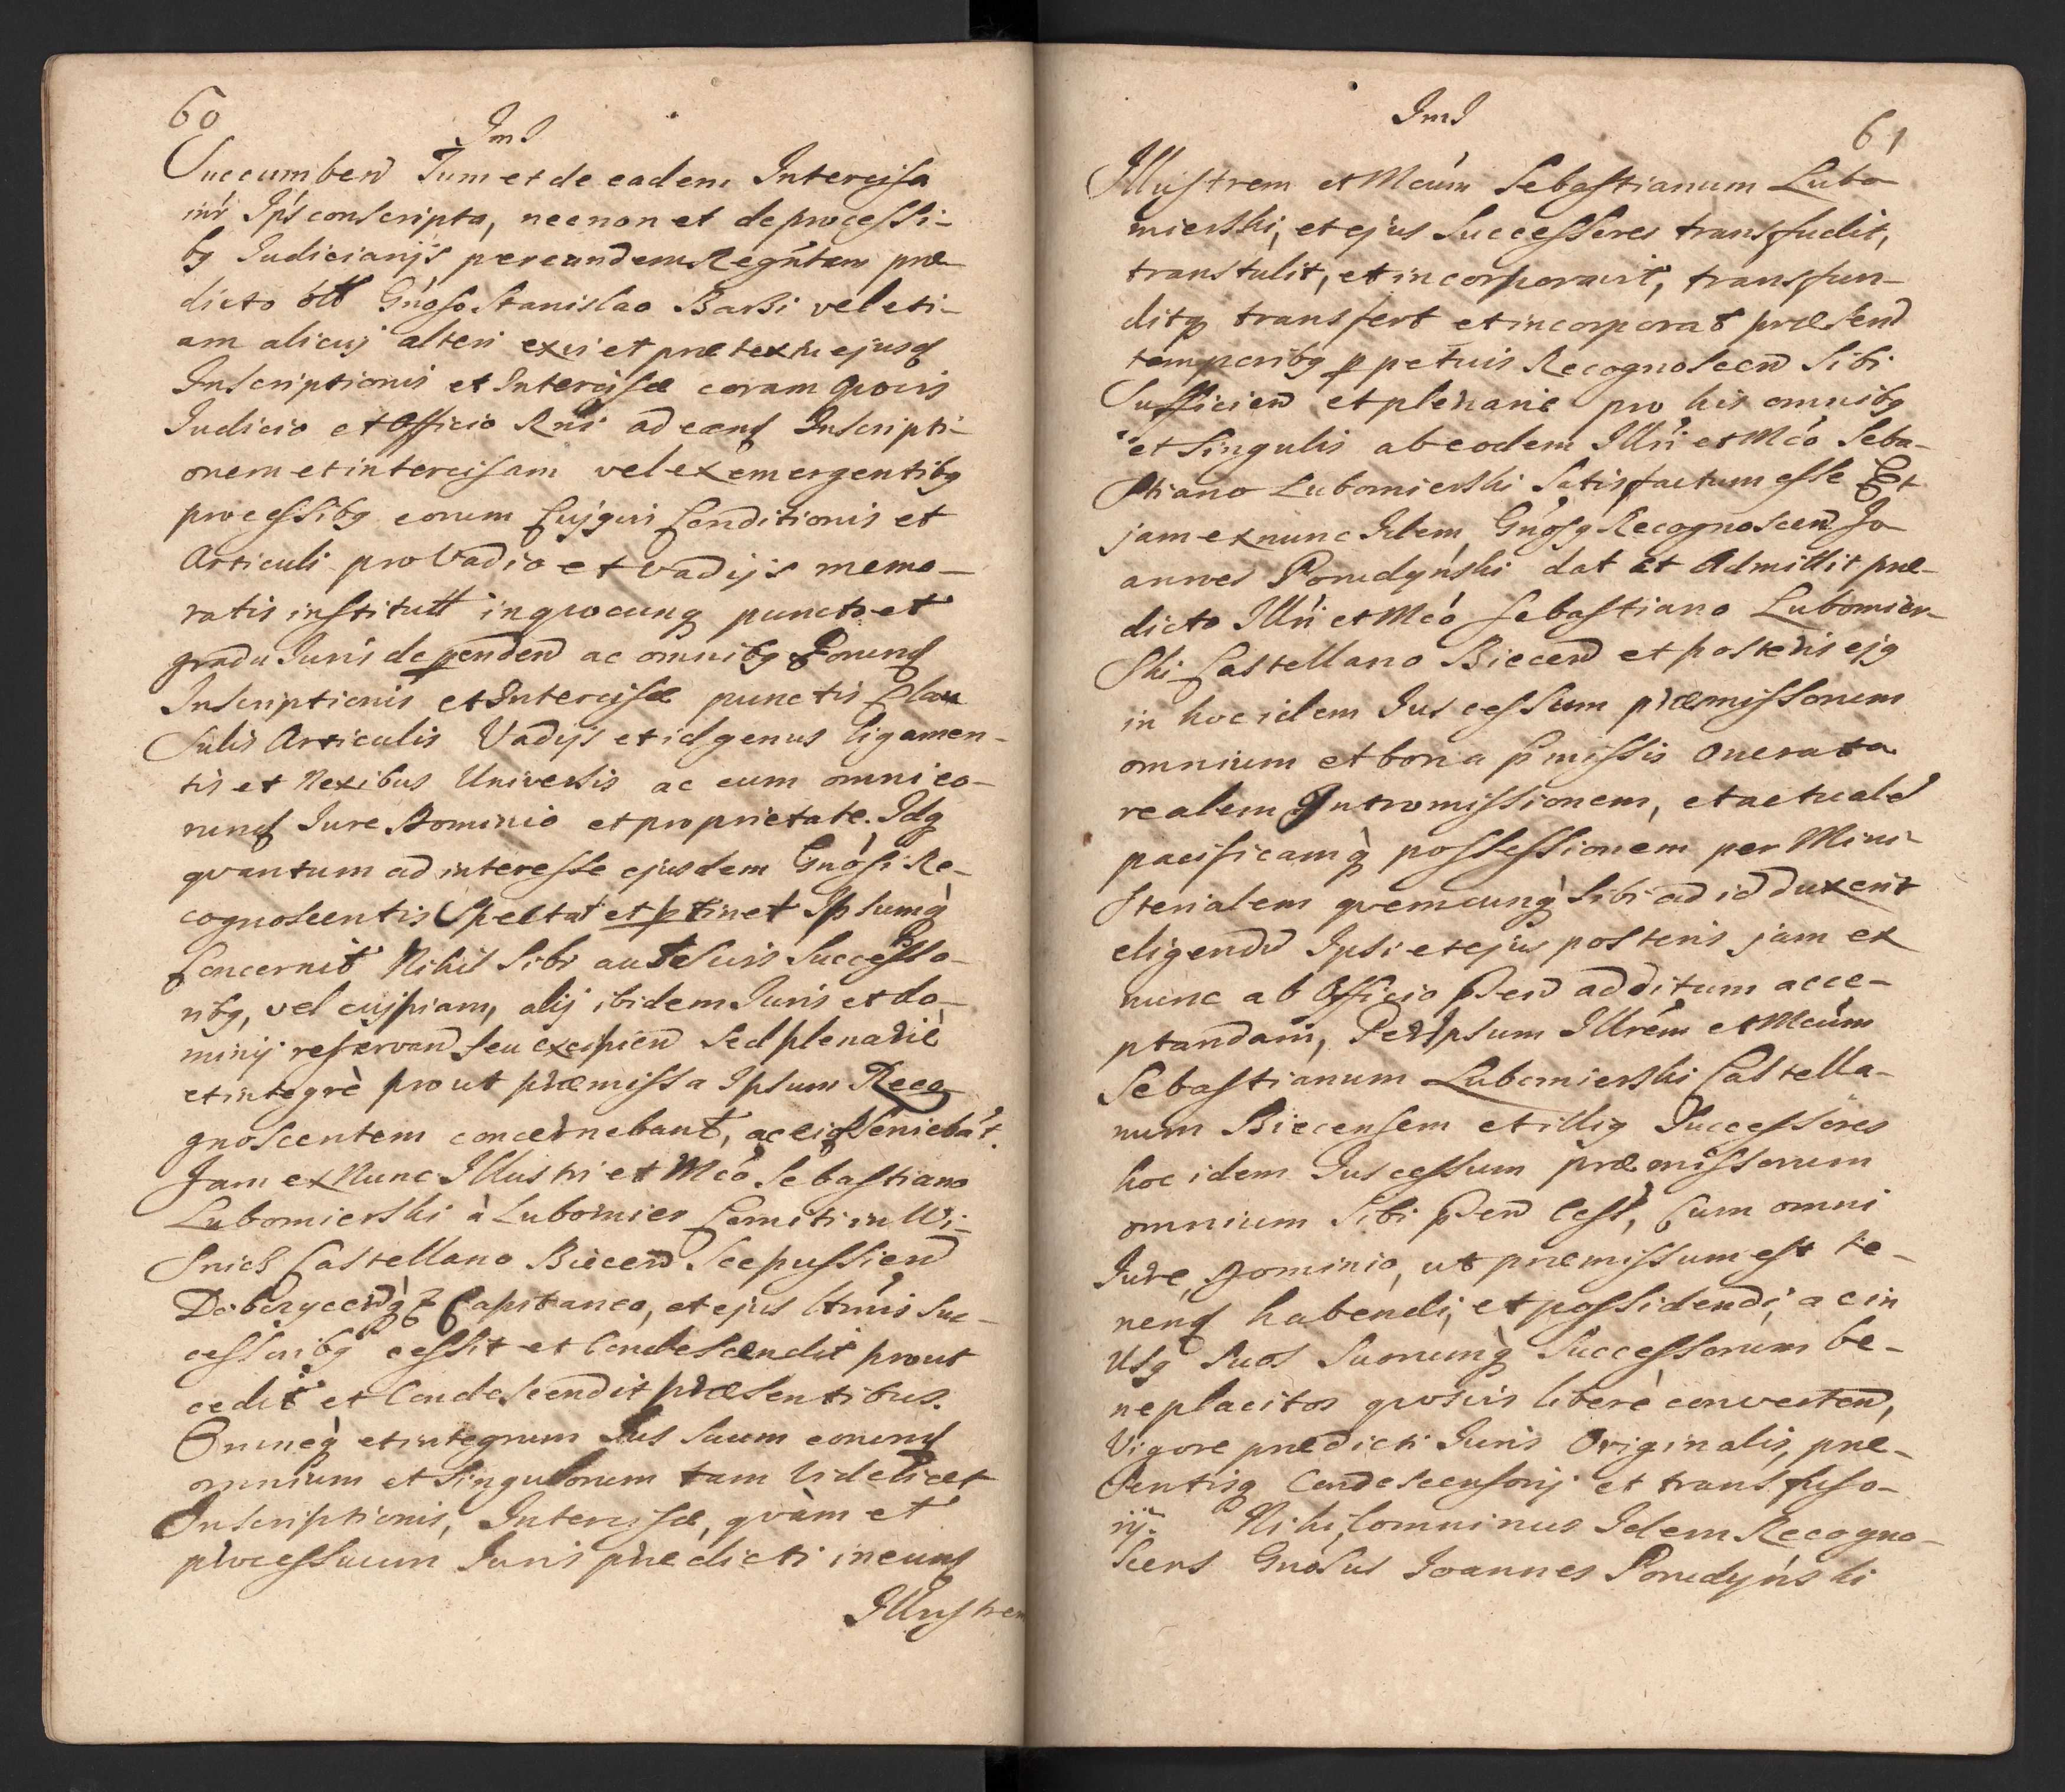 60
JmJ
Succumbend Tum et de eadem Intercisa
inr Ips conscripta, necnon et de processi-
bq Judicianijs per eundem Regntem præ
dicto olt Gnoso Stanislao Barsi vel eti-
am alicuj alteri ex vi et prætextu ejusd
Inscriptionis et Intercisæ coram qvovis
Judicio et Officio Rni ad eand Inscripti-
onem et intercisam vel ex emergentibq
processibq eorum Cujqvis Conditionis et
Articuli pro Vadio et vadijs memo-
ratis institutt in qvocunq puncto et
gradu Juris dependend ac omnibq Eorund
Inscriptionis et Intercisæ punctis Clau
sulis Articulis Vadijs et id genus ligamen-
tis et Nexibus Universis ac cum omni eo-
rund Jure Dominio et proprietate. Idq
qvantum ad interesse ejusdem Gnosi Re-
cognoscentis Spectat et ptinet Ipsumq
Concernit Nihil Sibi aut Suis Successo-
ribq, vel cujpiam, alij ibidem Juris et do-
minij reservand seu excipiend Sed plenarie
et integrè prout præmissa Ipsum Reco
gnoscentem concernebant, ac ei
Jam ex Nunc Illustri et Mco Sebastiano
Lubomierski à Lubomier Comiti in Wi-
snicz Castellano Biecend Scepussiend
Dobczycendq & Capitaneo, et ejus ltmis Suc-
cessoribq cessit et Condescendit prout
cedit et Condescendit præsentibus.
Omneq et integrum Jus Suum eorund
omnium et Singulorum tam Videlicet
Inscriptionis, Intercisæ, qvàm et
processuum Juris prædicti in eund
Illustrem
JmJ
61
Illustrem et Mcum Sebastianum Lubo
mierski, et ejus Successores transfudit,
transtulit, et incorporavit, transfun-
ditq transfert et incorporat præsend
temporibq ppetuis Recognoscend Sibi
Sufficiend et plenarie pro his omnibq
et Singulis ab eodem Illri et Mco Seba-
stiano Lubomierski Satisfactum esse Et
jam ex nunc Idem Gnosq Recognoscend Jo
annes Porudyński dat et Admittit præ-
dicto Illri et Mco Sebastiano Lubomier-
ski Castellano Biecend et posteris ejq
in hoc idem Jus cessum præmissorum
omnium et bona pmissis onerata
realem Intromissionem, et actuale
pacificamq possessionem per Mini-
sterialem qvemcunq Sibi ad id duxerit
eligendd Ipsi et ejus posteris jam ex
nunc ab Officio pend additum acce-
ptandam, Per Ipsum Illrem et Mcum
Sebastianum Lubomierski Castella-
num Biecensem et illiq Successores
hoc idem Jus cessum præmissorum
omnium Sibi pend Cess, Cum omni
Jure, Dominio, ut præmissum est te-
nend habendi, et possidendi, ac in
Usq Suos Suorumq Successorum be-
neplacitos qvosvis liberè convertend,
Vigore prædicti Juris Originalis, præ-
sentisq Condescensorij et transfuso-
rij. Nihilominus Idem Recogno-
scens Gnosus Joannes Porudyński